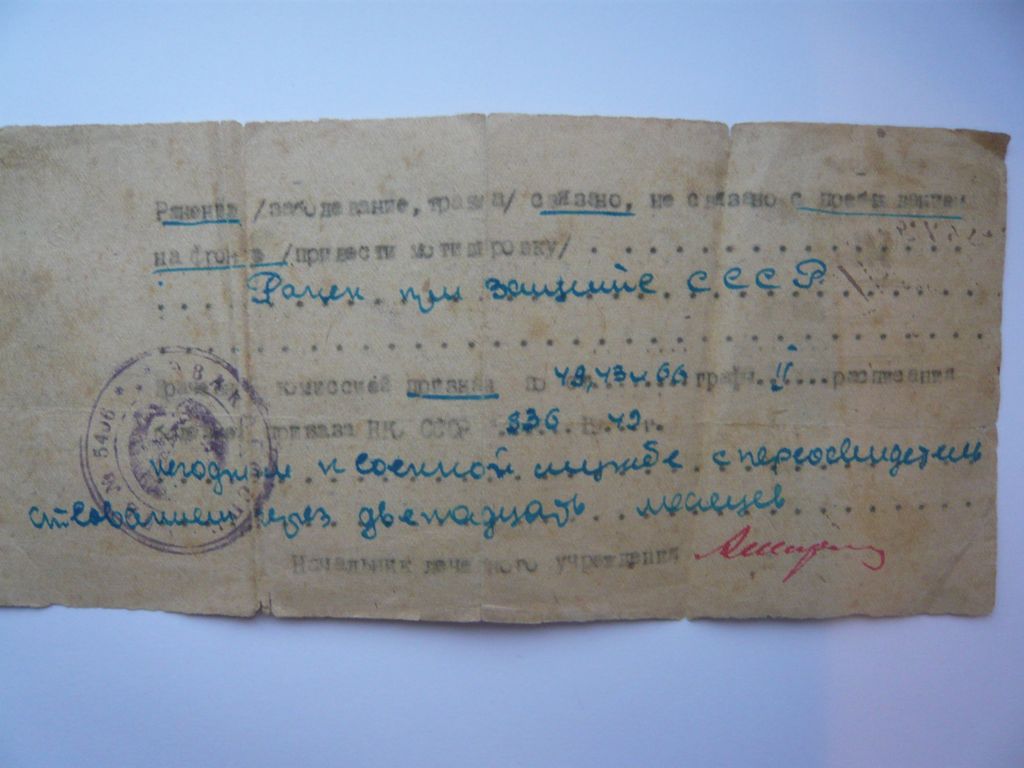 Ранение /заболевание, травма/ связано, не связано с пребыванием
на фронте /привести мотивировку/ . . . . . . . . . . . . . .
Ранен при защите СССР
Врачебной комиссией признан по ст. 49, 43 и 66 графы II расписания
приказа НКО СССР 336 1942 г.
негодным к военной службе с переосвидетель
ствованием через двенадцать месяцев
Начальник лечебного учреждения
№ 5406